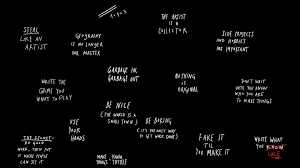 STEAL
LIKE AN
ARTIST
GEOGRAPHY
IS NO LONGER
OUR MASTER
THE ARTIST
IS A
COLLECTOR
SIDE PROJECTS
AND HOBBIES
ARE IMPORTANT
WRITE THE
GAME YOU
WANT TO PLAY
GARBAGE IN,
GARBAGE OUT
NOTHING
IS
ORIGINAL
DON'T WAIT
UNTIL YOU KNOW
WHO YOU ARE
TO MAKE THINGS
THE SECRET:
DO GOOD
WORK, THEN PUT
IT WHERE PEOPLE
CAN SEE IT
USE
YOUR
HANDS
BE NICE
(THE WORLD IS A
SMALL TOWN)
BE BORING
(IT'S THE ONLY WAY
TO GET WORK
DONE)
FAKE IT
'TIL YOU
MAKE IT
WRITE WHAT
YOU KNOW
LIKE
MAKE
THINGS